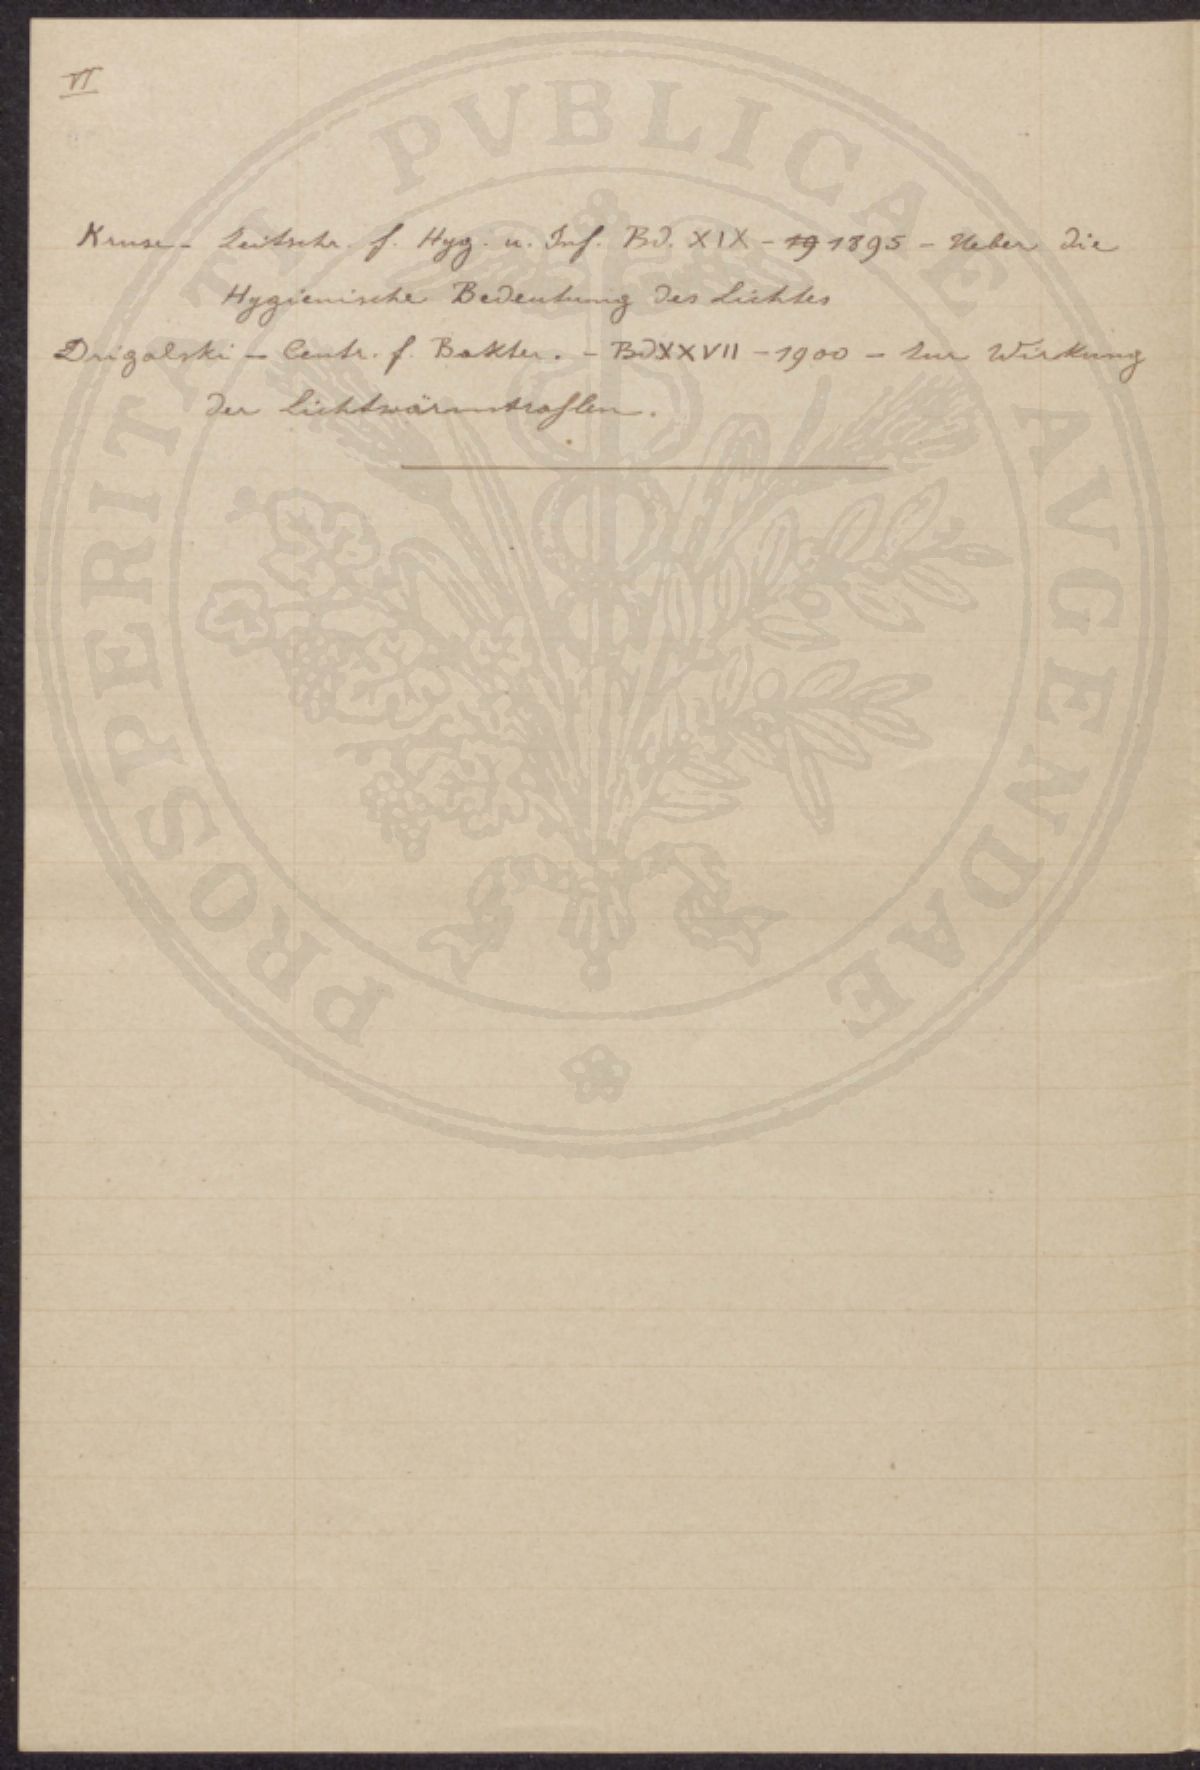 VI
PROSPERITATI PVBLICAE AVGENDAE
Kruse - Zeitschr. f. Hyg. u. Inf. Bd. XIX - 19 1895 - Ueber die
Hygienische Bedeutung des Lichtes
Drigalski - Centr. f. Bakter. - Bd XXVII - 1900 - Zur Wirkung
der Lichtwärmstrahlen.